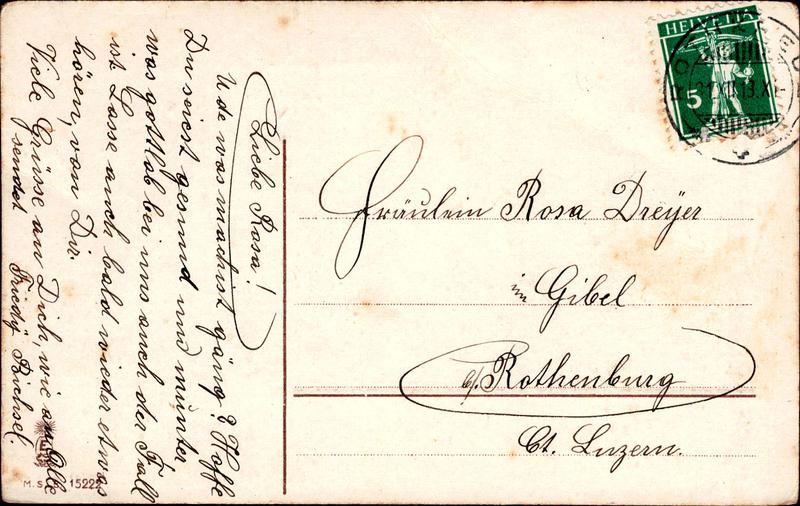 Liebe Rosa!
U de was machst gäng? Hoffe
Du seiest gesund und munter
was gottlob bei uns auch der Fall
ist. Lasse auch bald wieder etwas
hören, von Dir.
Viele Grüsse an Dich, wie an Alle
sendet Friedy Bichsel.
HELVETIA
5
31.XII.13.XI
Fräulein Rosa Dreyer
im Gibel
b/ Rothenburg
Ct. Luzern.
M.S. 1522